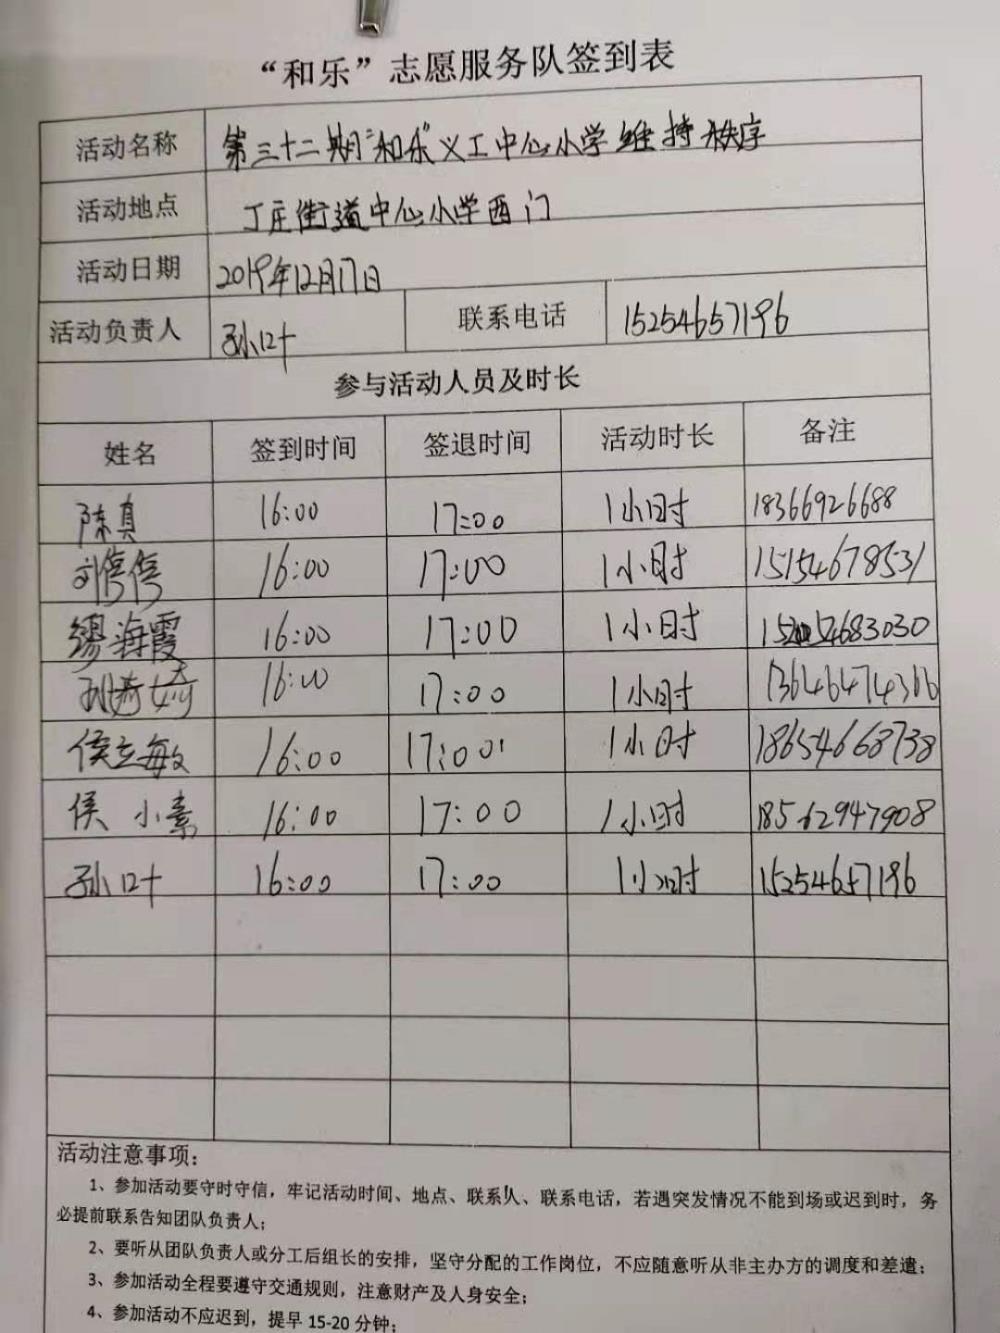 “和乐”志愿服务队签到表
活动名称 第三十二期“和乐”义工中心小学维持秩序
活动地点 丁庄街道中心小学西门
活动日期 2019年12月17日
活动负责人 孙叶 联系电话 15254657196
参与活动人员及时长
姓名 签到时间 签退时间 活动时长 备注
陈真 16:00 17:00 1小时 18366926688
刘停停 16:00 17:00 1小时 15154678531
缪海霞 16:00 17:00 1小时
孙 16:00 17:00 1小时
侯立敏 16:00 17:00 1小时 18654668738
侯小素 16:00 17:00 1小时 18562947908
孙叶 16:00 17:00 1小时 15254657196
活动注意事项：
1、参加活动要守时守信，牢记活动时间、地点、联系人、联系电话，若遇突发情况不能到场或迟到时，务
必提前联系告知团队负责人；
2、要听从团队负责人或分工后组长的安排，坚守分配的工作岗位，不应随意听从非主办方的调度和差遣；
3、参加活动全程要遵守交通规则，注意财产及人身安全；
4、参加活动不应迟到，提早 15-20 分钟；